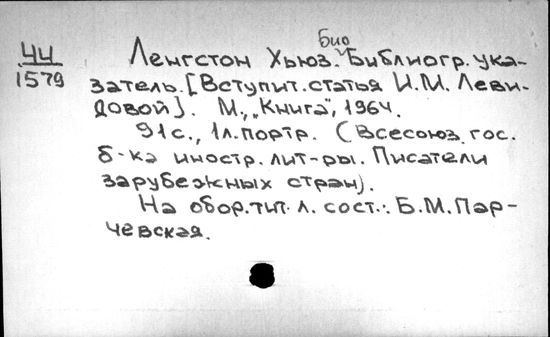 44
1579
Ленгстон Хьюз. БиоБиблиогр. ука-
затель. [Вступит. статья И.М. Леви-
довой]. М., „Книга", 1964.
91с., 1л. портр. (Всесоюз. гос.
б-ка иностр. лит-ры. Писатели
зарубежных стран).
На обор. тит. л. сост.: Б.М. Пар-
чевская.